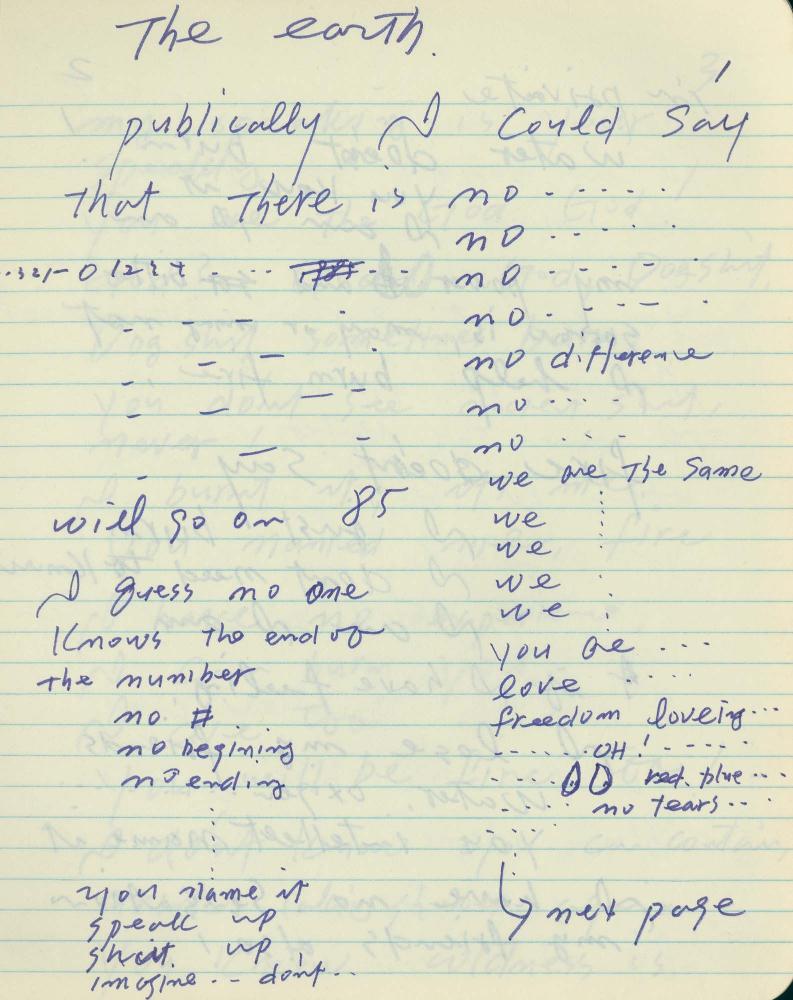 The earth.
1
publically I could say
that there is no - - - - -
no - - - - -
...321-0123+ . - - - - -
no - - - - -
no - - - - -
no difference
no - - -
no - - -
will go on 85
I guess no one
Knows the end of
the number
no #
no begining
no ending
you name it
speak up
shut up
imagine -- dont --
we are the same
we
we
we
we
you are ...
love .....
freedom loveing...
- - - - - - OH! - - - - -
- - - - - red. blue...
- - - - - no tears...
next page